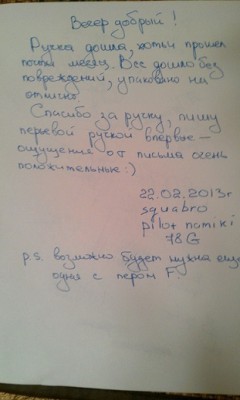 Вечер добрый!
Ручка дошла, хотьи прошел
почти месяц. Все дошло без
повреждений, упаковано на
отлично
Спасибо за ручку, пишу
перьевой ручкой впервые –
ощущения от письма очень
положительные :)
22.02.2013г
squabro
pilot namiki
78G
p.s. возможно будет нужна еще
одна с пером F.